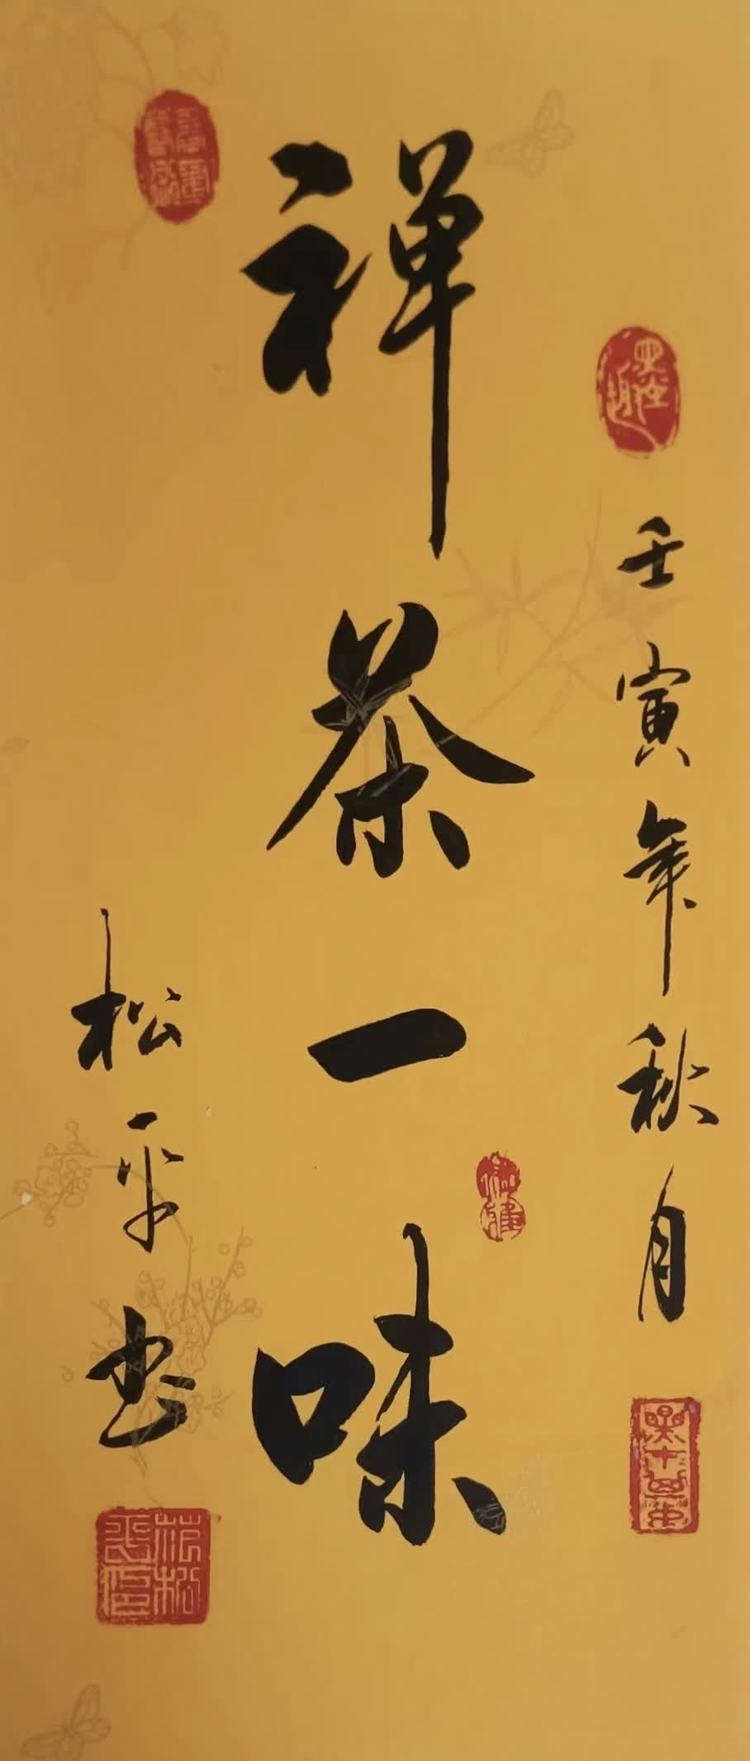 壬寅年秋月
禅茶一味
松平书